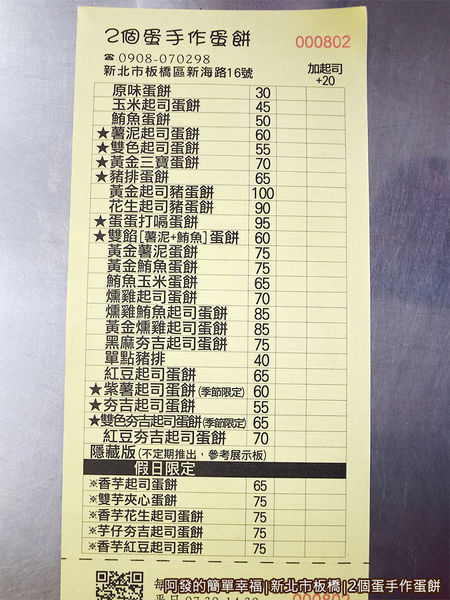 2個蛋手作蛋餅 000802
☎0908-070298
新北市板橋區新海路16號 加起司
+20
原味蛋餅 30
玉米起司蛋餅 45
鮪魚蛋餅 50
★薯泥起司蛋餅 60
★雙色起司蛋餅 55
★黃金三寶蛋餅 70
★豬排蛋餅 65
黃金起司豬蛋餅 100
花生起司豬蛋餅 90
★蛋蛋打嗝蛋餅 95
★雙餡[薯泥+鮪魚]蛋餅 60
黃金薯泥蛋餅 75
黃金鮪魚蛋餅 75
鮪魚玉米蛋餅 65
燻雞起司蛋餅 70
燻雞鮪魚起司蛋餅 85
黃金燻雞起司蛋餅 85
黑麻夯吉起司蛋餅 75
單點豬排 40
紅豆起司蛋餅 65
★紫薯起司蛋餅(季節限定) 60
★夯吉起司蛋餅 55
★雙色夯吉起司蛋餅(季節限定) 65
紅豆夯吉起司蛋餅 70
隱藏版(不定期推出，參考展示板)
假日限定
※香芋起司蛋餅 65
※雙芋夾心蛋餅 75
※香芋花生起司蛋餅 75
※芋仔夯吉起司蛋餅 75
※香芋紅豆起司蛋餅 75
阿發的簡單幸福|新北市板橋|2個蛋手作蛋餅
000802